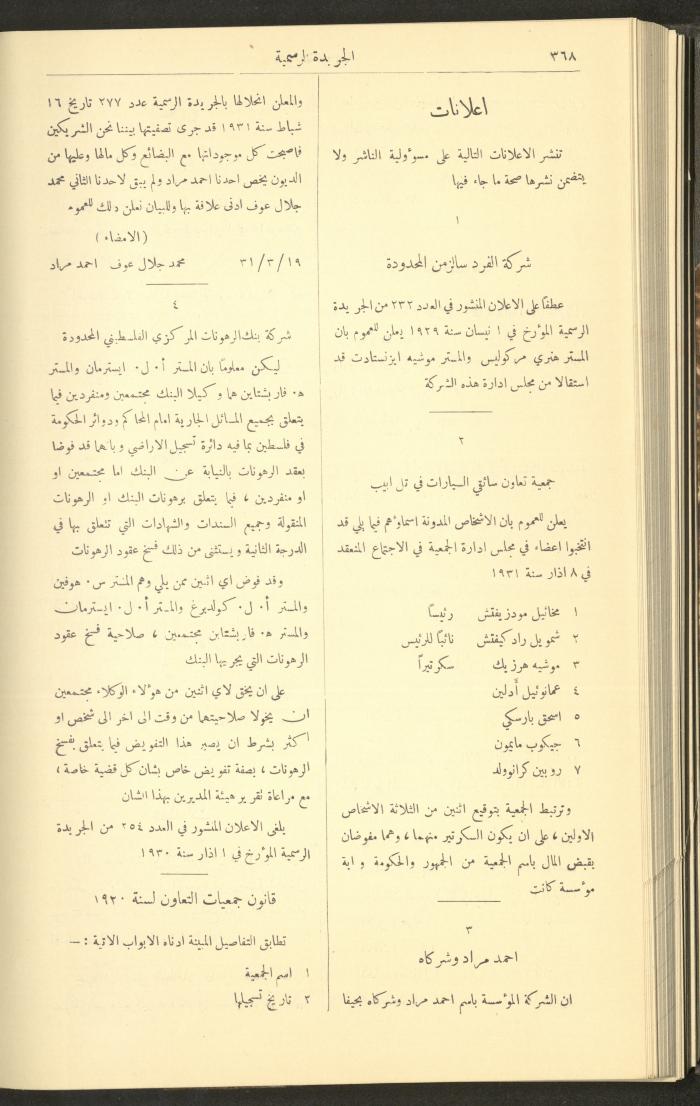 ٣٦٨
الجريدة الرسمية
اعلانات
تنشر الاعلانات التالية على مسوؤلية الناشر ولا
يتضمن نشرها صحة ما جاء فيها
١
شركة الفرد سالزمن المحدودة
عطفا على الاعلان المنشور في العدد ٢٣٢ من الجريدة
الرسمية المؤرخ في ١ نيسان سنة ١٩٢٩ يعلن للعموم بان
المستر هنري مركوليس والمستر موشيه ايزنستادت قد
استقالا من مجلس ادارة هذه الشركة
٢
جمعية تعاون سائقي السيارات في تل ابيب
يعلن للعموم بان الاشخاص المدونة اسماؤهم فيما يلي قد
انتخبوا اعضاء في مجلس ادارة الجمعية في الاجتماع المنعقد
في ٨ اذار سنة ١٩٣١
١ مخائيل مودزيفتش رئيسًا
٢ شمويل رادكيفتش نائبًا للرئيس
٣ موشيه هرزيك سكرتيراً
٤ عمانوئيل أدلين
٥ اسحق بارسكي
٦ جيكوب مايمون
٧ روبين كرانوولد
وترتبط الجمعية بتوقيع اثنين من الثلاثة الاشخاص
الاولين ، على ان يكون السكرتير منهما ، وهما مفوضان
بقبض المال باسم الجمعية من الجمهور والحكومة واية
مؤسسة كانت
٣
احمد مراد وشركاه
ان الشركة المؤسسة باسم احمد مراد وشركاه بحيفا
والمعلن انحلالها بالجريدة الرسمية عدد ٢٧٧ تاريخ ١٦
شباط سنة ١٩٣١ قد جرى تصفيتها بيننا نحن الشريكين
فاصبحت كل موجوداتها مع البضائع وكل مالها وعليها من
الديون يخص احدنا احمد مراد ولم يبق لاحدنا الثاني محمد
جلال عوف ادنى علاقة بها وللبيان نعلن ذلك للعموم
(الامضاء)
٣١/٣/١٩ محمد جلال عوف احمد مراد
٤
شركة بنك الرهونات المركزي الفلسطيني المحدودة
ليكن معلومًا بان المستر أ٠ ل٠ ايسترمان والمستر
ه٠ فاربشتاين هما وكيلا البنك مجتمعين ومنفردين فيما
يتعلق بجميع المسائل الجارية امام المحاكم ودوائر الحكومة
في فلسطين بما فيه دائرة تسجيل الاراضي وبانهما قد فوضا
بعقد الرهونات بالنيابة عن البنك اما مجتمعين او
او منفردين ، فيما يتعلق برهونات البنك او الرهونات
المنقولة وجميع السندات والشهادات التي تتعلق بها في
الدرجة الثانية ويستثنى من ذلك فسخ عقود الرهونات
وقد فوض اي اثنين ممن يلي وهم المستر س٠ هوفين
والمستر أ٠ ل٠ كولدبرغ والمستر أ٠ ل٠ ايسترمان
والمستر ه٠ فاربشتاين مجتمعين ، صلاحية فسخ عقود
الرهونات التي يجريها البنك
على ان يحق لاي اثنين من هؤلاء الوكلاء مجتمعين
ان يخولا صلاحيتهما من وقت الى اخر الى شخص او
اكثر بشرط ان يصير هذا التفويض فيما يتعلق بفسخ
الرهونات ، بصفة تفويض خاص بشان كل قضية خاصة ،
مع مراعاة تقرير هيئة المديرين بهذا الشان
يلغى الاعلان المنشور في العدد ٢٥٤ من الجريدة
الرسمية المؤرخ في ١ اذار سنة ١٩٣٠
قانون جمعيات التعاون لسنة ١٩٢٠
تطابق التفاصيل المبينة ادناه الابواب الاتية : —
١ اسم الجمعية
٢ تاريخ تسجيلها